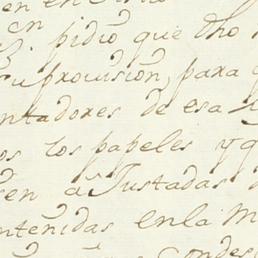 en en
en pidio que dho
su provission, para
ntadores de esa
os los papeles y q
sen aJustadas
ntenidas en la M